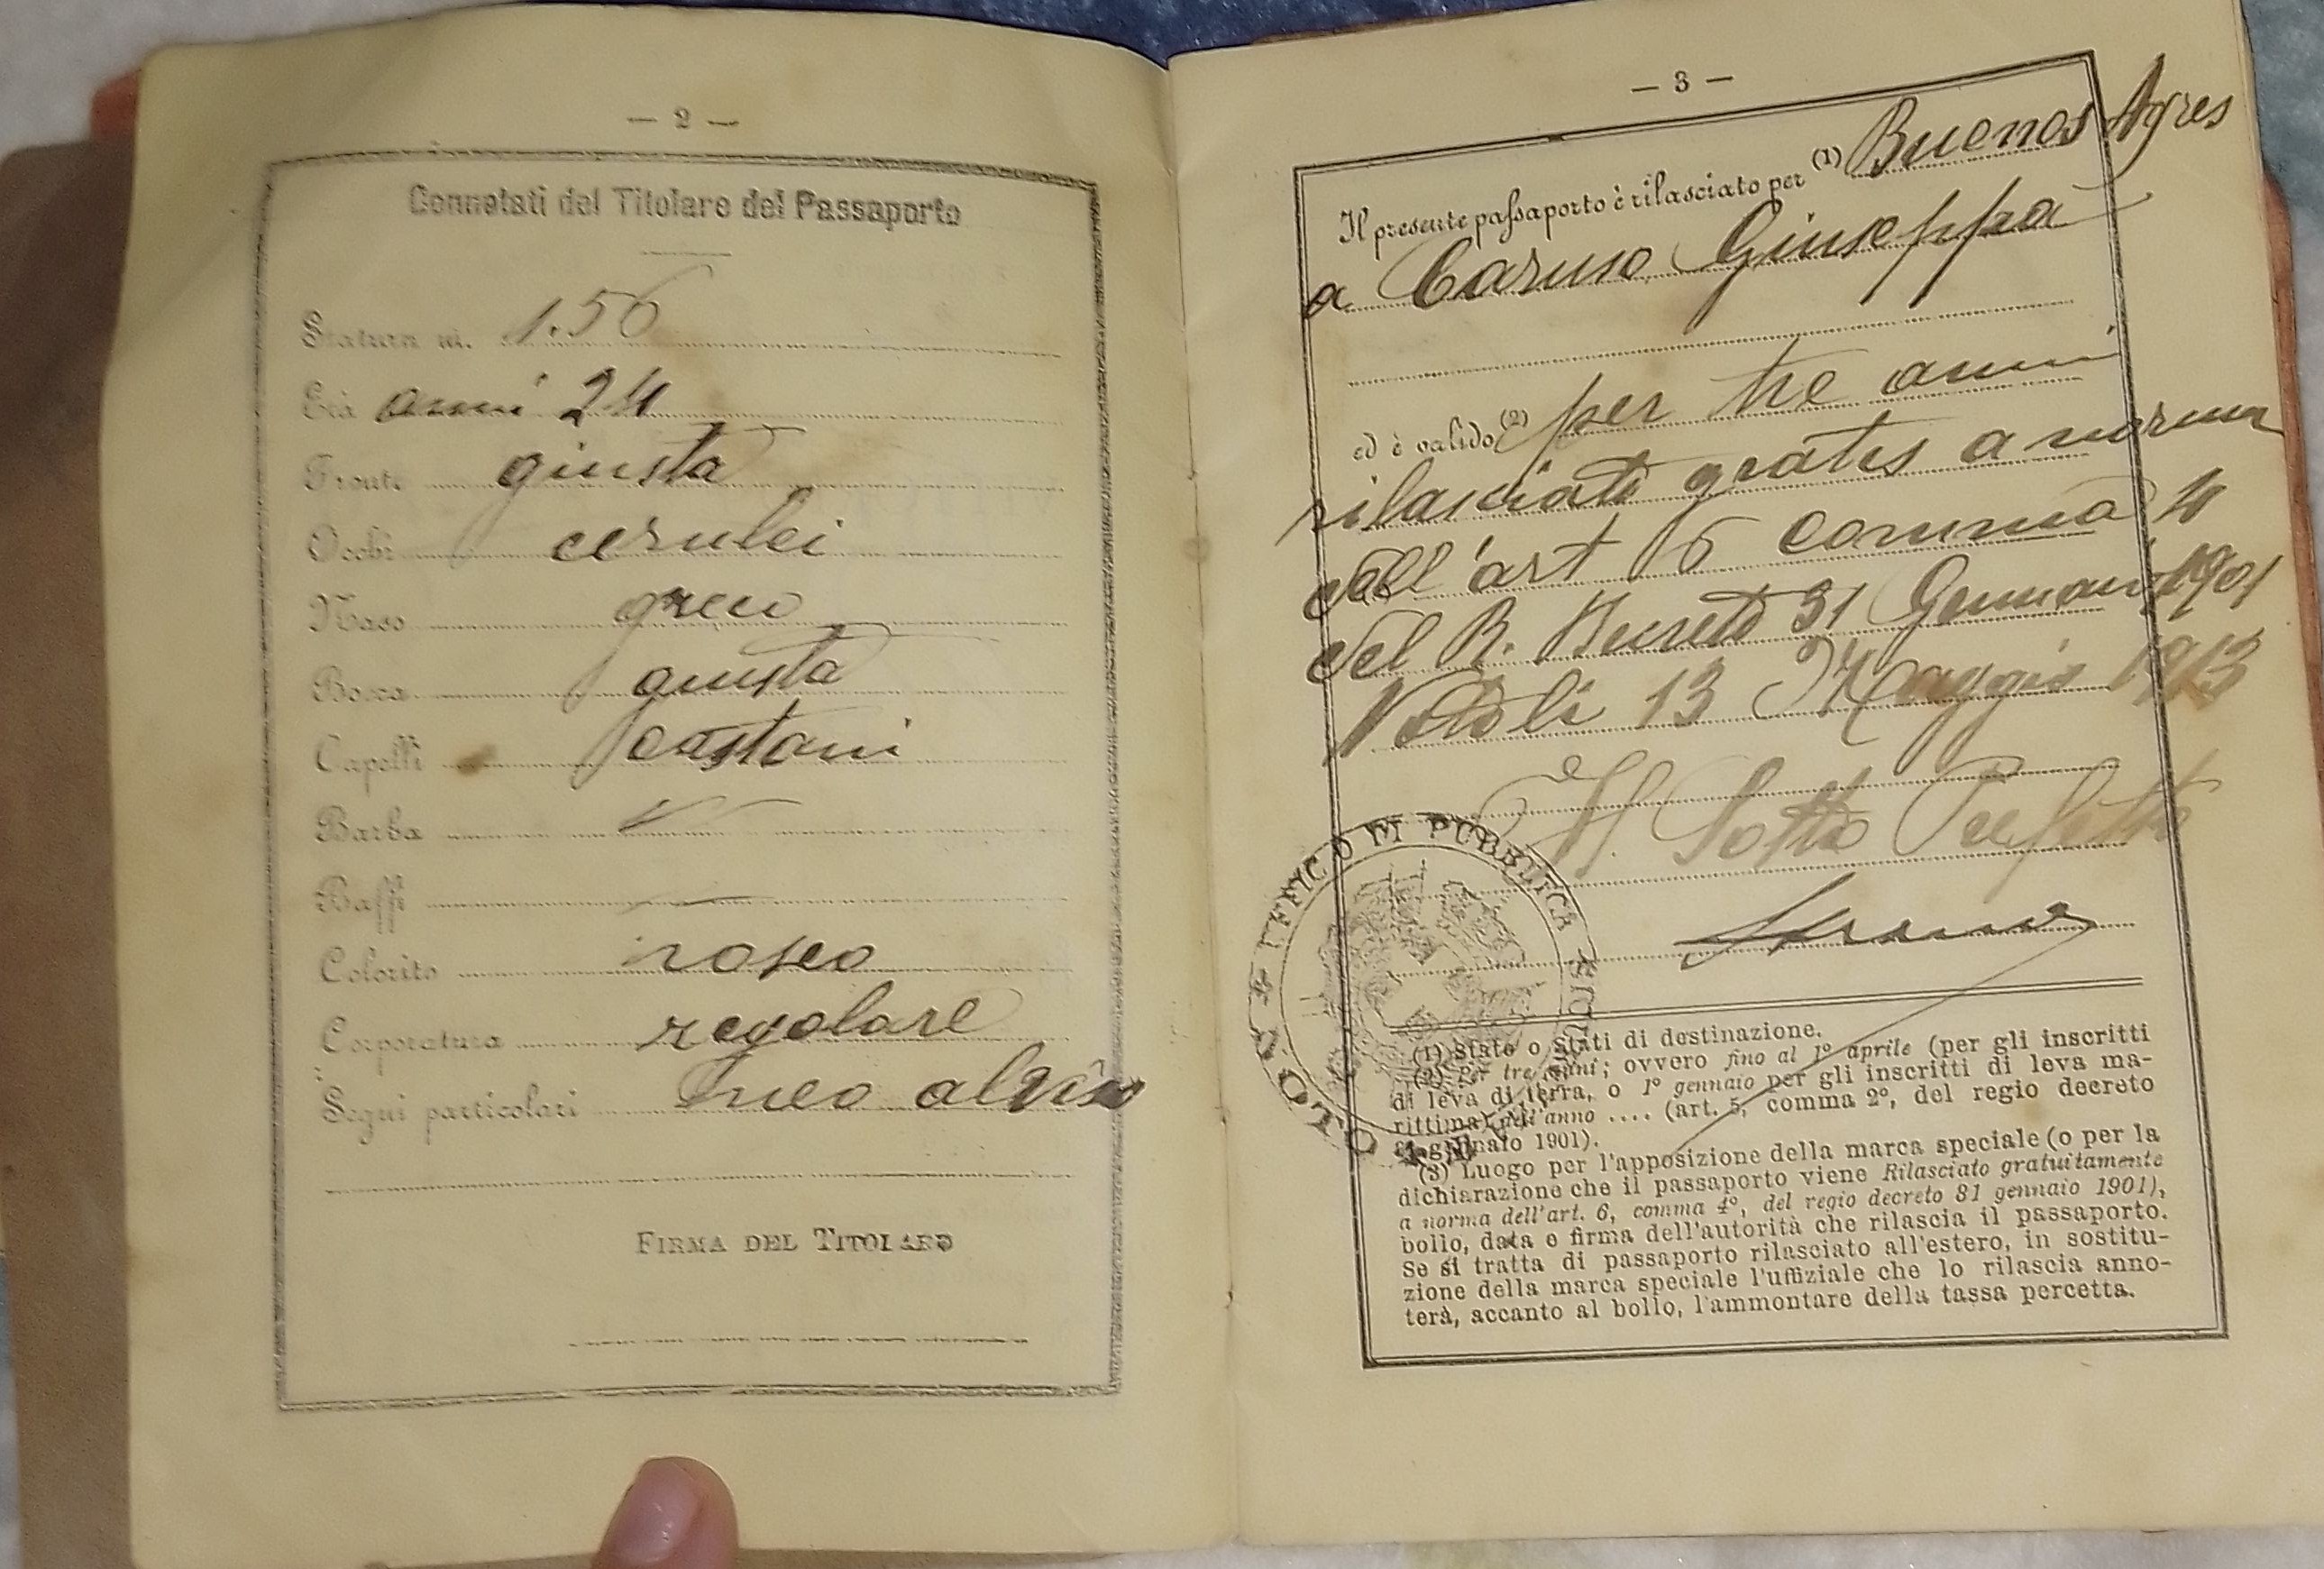 — 2 —
Connotati del Titolare del Passaporto
Statura m. 1.56
Età anni 24
Fronte giusta
Occhi cerulei
Naso greco
Bocca giusta
Capelli castani
Barba
Baffi
Colorito roseo
Corporatura regolare
Segni particolari neo al viso
FIRMA DEL TITOLARE
— 3 —
Il presente passaporto è rilasciato per (1) Buenos Ayres
a Caruso Giuseppa
ed è valido (2) per tre anni
rilasciato gratis a norma
dell'art 6 comma 4
del R. Decreto 31 Gennaio 1901
13 Maggio 1913
Il Sotto Prefetto
UFFICIO DI PUBBLICA
(1) Stato o Stati di destinazione.
(2) Per tre anni; ovvero fino al 1º aprile (per gli inscritti
di leva di terra, o 1º gennaio per gli inscritti di leva ma-
rittima) dell'anno .... (art. 5, comma 2º, del regio decreto
31 gennaio 1901).
(3) Luogo per l'apposizione della marca speciale (o per la
dichiarazione che il passaporto viene Rilasciato gratuitamente
a norma dell'art. 6, comma 4º, del regio decreto 31 gennaio 1901),
bollo, data e firma dell'autorità che rilascia il passaporto.
Se si tratta di passaporto rilasciato all'estero, in sostitu-
zione della marca speciale l'uffiziale che lo rilascia anno-
terà, accanto al bollo, l'ammontare della tassa percetta.